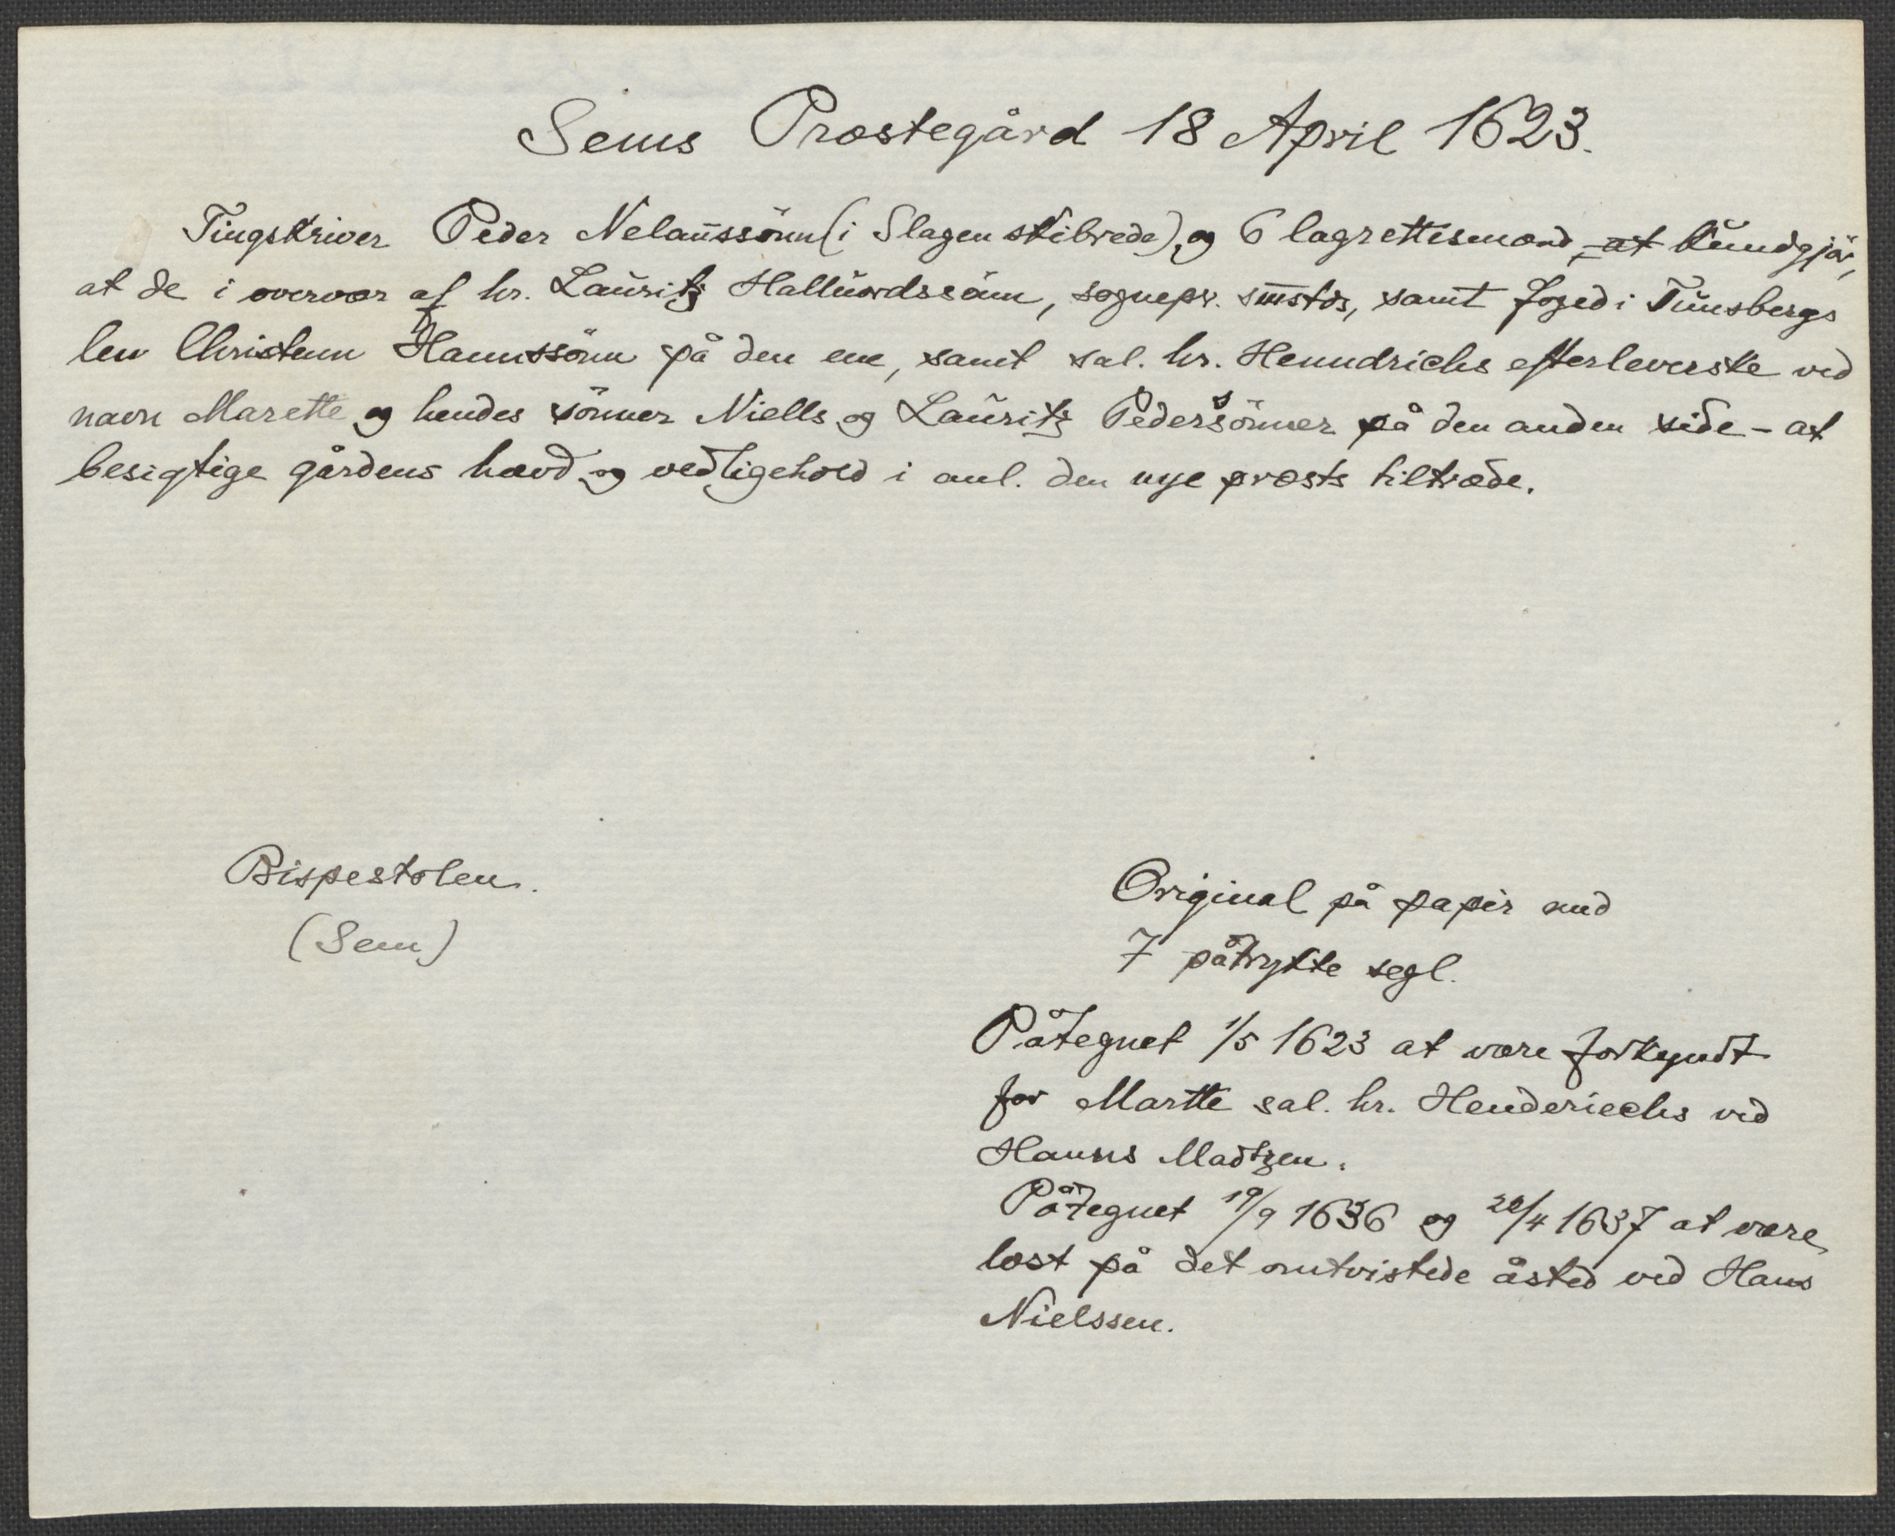 Sems Præstegård 18 April 1623.
Tingskriver Peder Nelaussönn (i Slagen skibrede), og 6 lagrettesmænd, at kundgjör,
at de i overvær af hr. Lauritz Halluordssönn, sognepr. smstds, samt foged i Tunsbergs
len Christenn Hannssönn på den ene, samt sal. hr. Henndrichs efterleverske ved
navn Marette og hendes sönner Niells og Lauritz Pederssönner på den anden side – at
besigtige gårdens hævd og vedligehold i anl. den nye præsts tiltræde.
Bispestolen.
(Sem)
Original på papir med
7 påtrykte segl.
Påtegnet 1/5 1623 at være forkyndt
for Martte sal. hr. Henderiechs ved
Hanns Madtzen.
Påtegnet 19/9 1636 og 20/4 1637 at være
læst på det omtvistede åsted ved Hans
Nielssen.